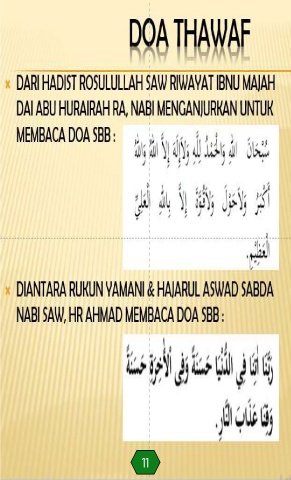 DOA THAWAF
DARI HADIST ROSULULLAH SAW RIWAYAT IBNU MAJAH
DAI ABU HURAIRAH RA, NABI MENGANJURKAN UNTUK
MEMBACA DOA SBB :
سُبْحَانَ اللهِ وَالْحَمْدُ لِلّٰهِ وَلَاإِلٰهَ إِلَّا اللهُ وَاللهُ
أَكْبَرُ وَلَاحَوْلَ وَلَاقُوَّةَ إِلَّا بِاللهِ الْعَلِيِّ
الْعَظِيْمِ.
DIANTARA RUKUN YAMANI & HAJARUL ASWAD SABDA
NABI SAW, HR AHMAD MEMBACA DOA SBB :
رَبَّنَا اٰتِنَا فِي الدُّنْيَا حَسَنَةً وَفِي الْأٰخِرَةِ حَسَنَةً
وَقِنَا عَذَابَ النَّارِ.
11